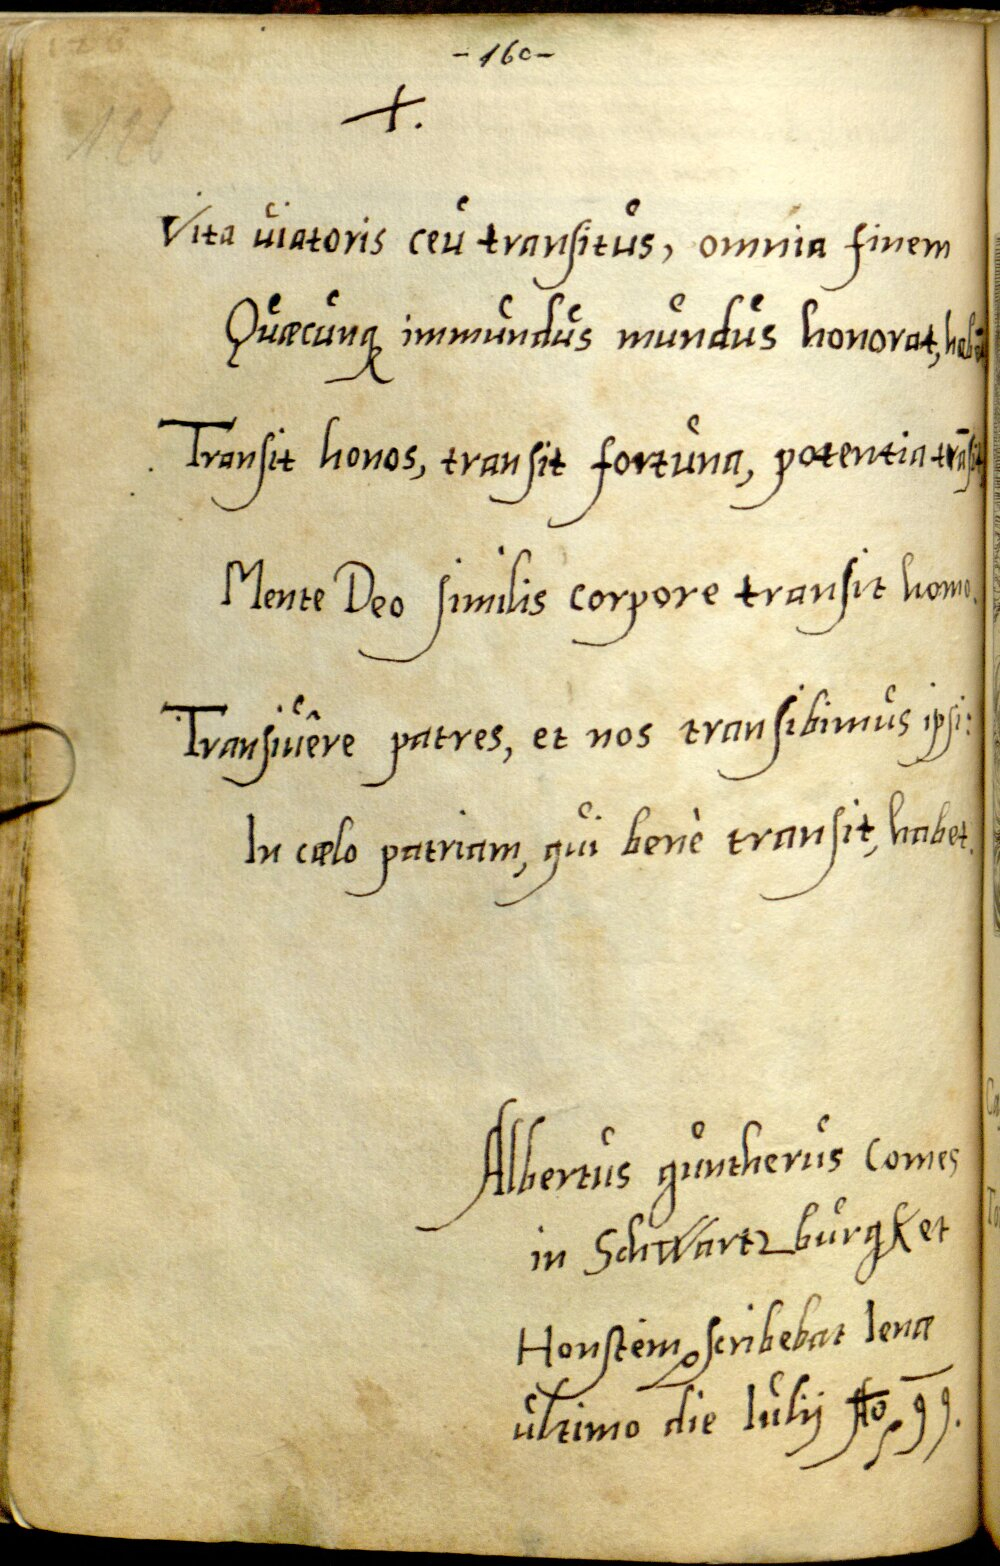 -160-
126
+.
Vita uiatoris ceu transitus, omnia finem
Quæcunq immundus mundus honorat,
Transit honos, transit fortuna, potentia trāsit,
Mente Deo similis corpore transit homo.
Transiuêre patres, et nos transibimus ipsi:
In cælo patriam, qui benè transit, habet.
Albertus guntherus comes
in Schwartzburgk et
Honstein scribebat Ienæ
ultimo die Iulij Aō 99.